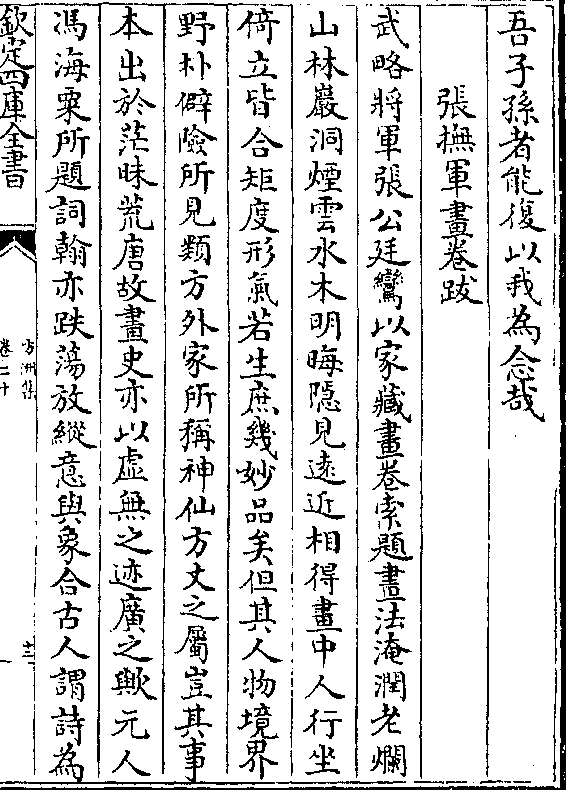 吾子孫者能復以我為念哉
張撫軍畫卷跋
武略將軍張公廷鸞以家藏畫卷索題畫法淹潤老爛
山林巖洞煙雲水木明晦隱見遠近相得畫中人行坐
倚立皆合矩度形氣若生庶幾妙品矣但其人物境界
野朴僻險所見類方外家所稱神仙方丈之屬豈其事
本出於茫昧荒唐故畫史亦以虛無之迹廣之歟元人
馮海粟所題詞翰亦跌蕩放縱意與象合古人謂詩為
欽定四庫全書
方洲集
卷二十